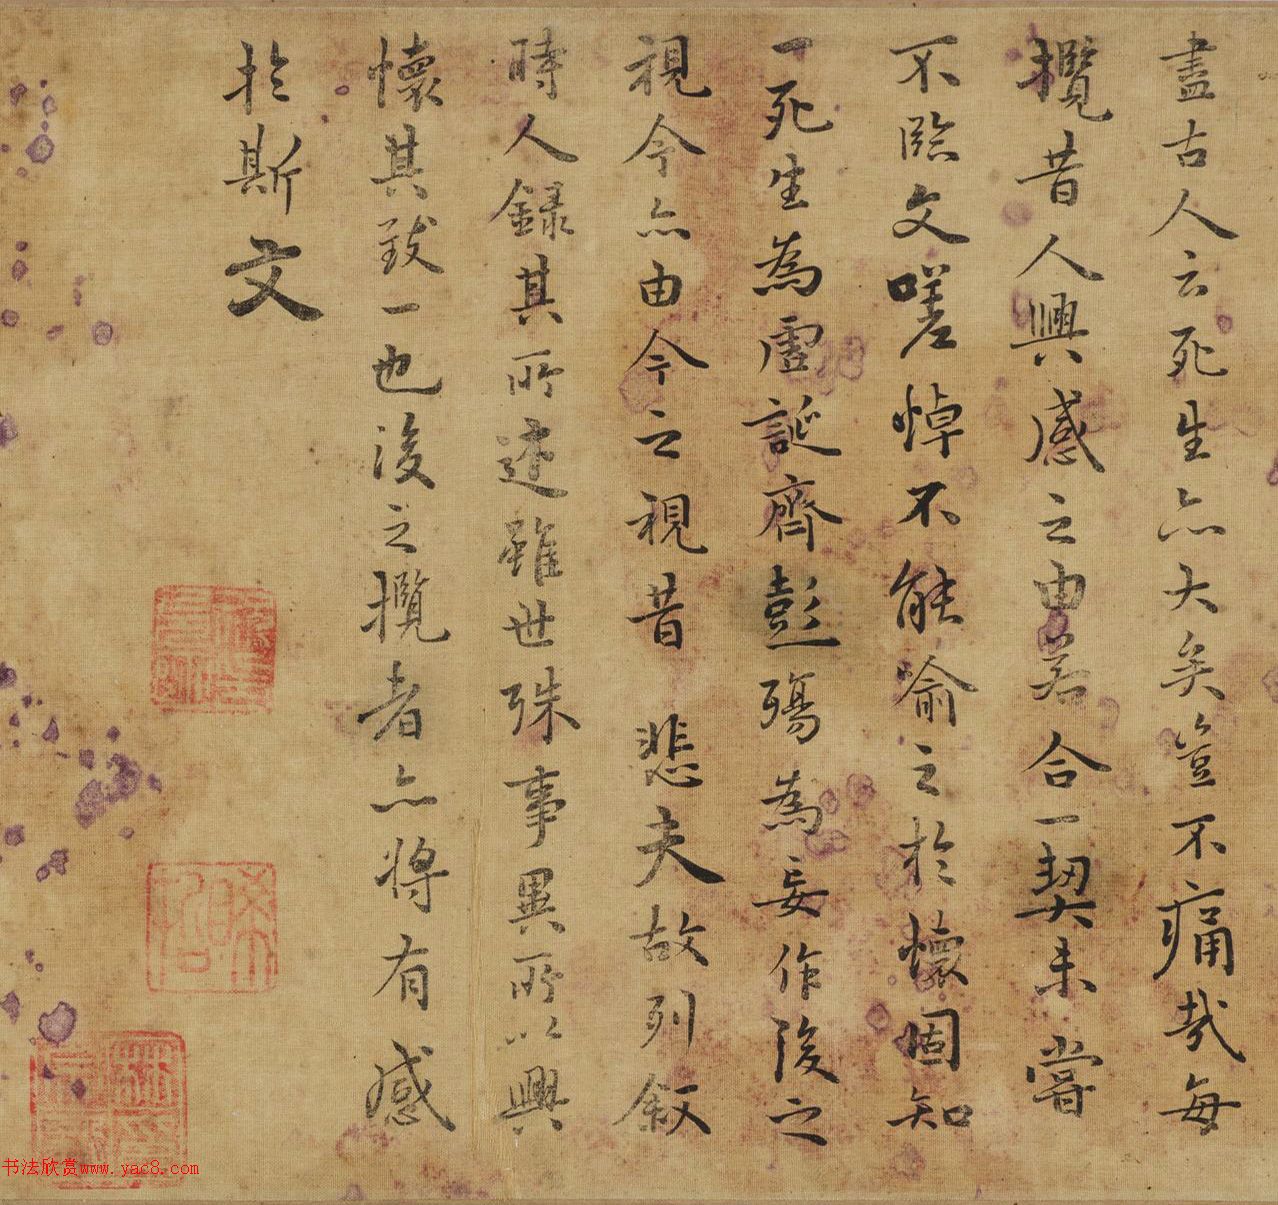 盡古人云死生亦大矣豈不痛哉每
攬昔人興感之由若合一契未嘗
不臨文嗟悼不能喻之於懷固知
一死生為虛誕齊彭殤為妄作後之
視今亦由今之視昔 悲夫故列叙
時人録其所述雖世殊事異所以興
懷其致一也後之攬者亦將有感
於斯文
书法欣赏www.yac8.com